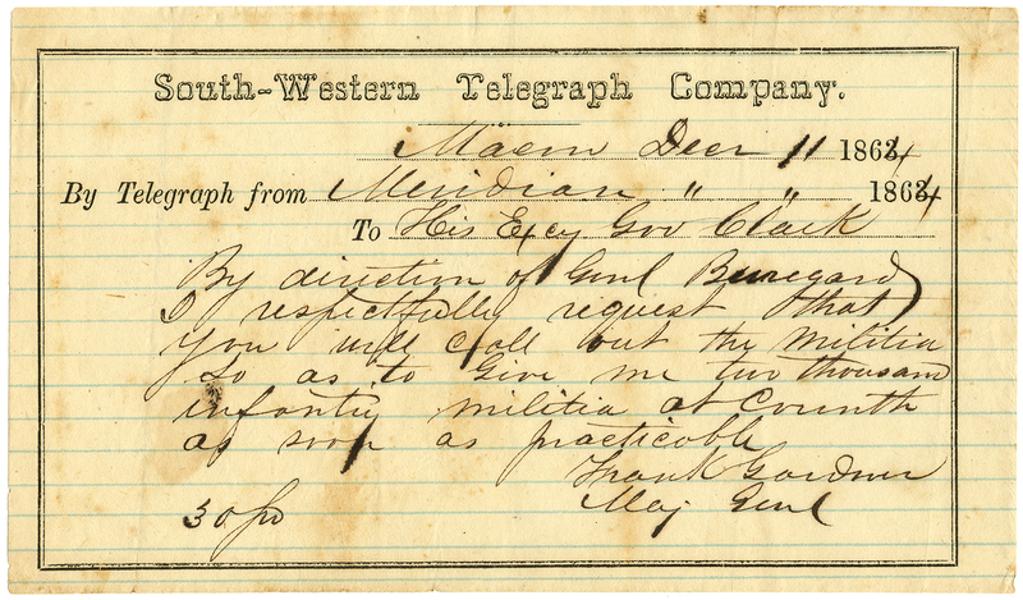 South-Western Telegraph Company.
Macon Decr 11 1864
By Telegraph from Meridian " " 1864
To His Excy Gov Clark
By direction of Genl Beauregard
I respectfully request that
you will call out the militia
so as to give me two thousand
infantry militia at Corinth
as soon as practicable
Frank Gardner
Maj Genl
30 pd